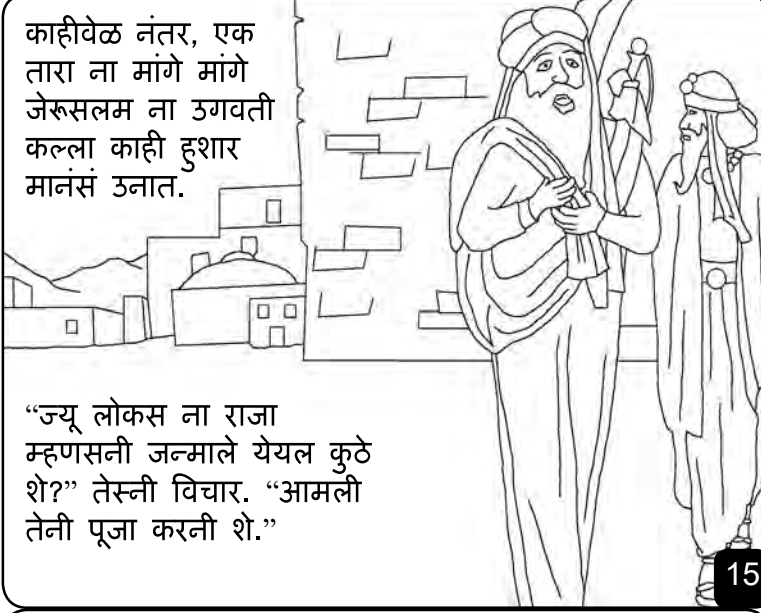 काहीवेळ नंतर, एक
तारा ना मांगे मांगे
जेरूसलम ना उगवती
कल्ला काही हुशार
मानंसं उनात.
“ज्यू लोकस ना राजा
म्हणसनी जन्माले येयल कुठे
शे?” तेस्नी विचार. “आमली
तेनी पूजा करनी शे.”
15